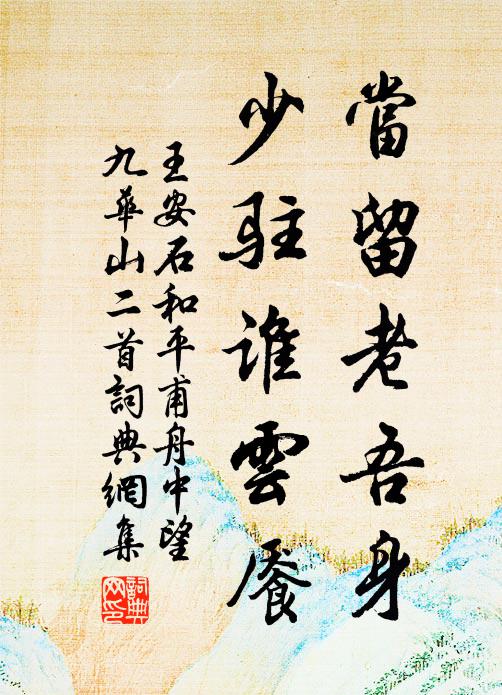 當留老吾身
少駐誰雲饜
王安石和平甫舟中望
九華山二首詞典網集
詞典
網印